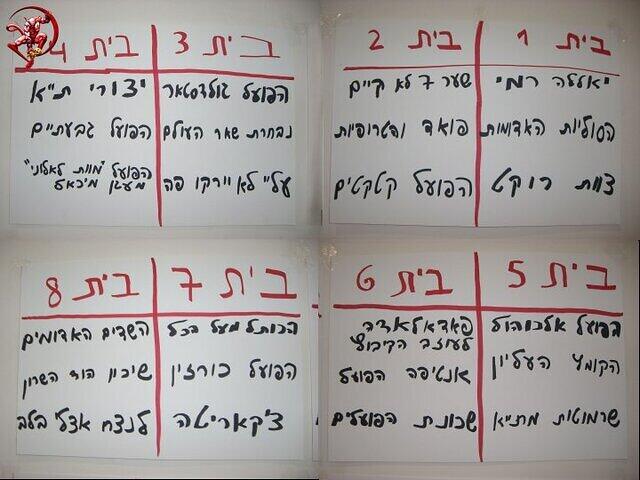 בית 1
יאללה רמי
הסוליות האדומות
צוות רוקט
בית 2
שער 7 לא קיים
פואד והטרופיות
הפועל קטקטים
בית 3
הפועל גולדסטאר
נבחרת שאר העולם
עליי לא יירקו פה
בית 4
יצורי ת"א
הפועל גבעתיים
הפועל "מוות לאלוני"
מעגן מיכאל
בית 5
הפועל אלכוהול
הקומץ העליון
שרמוטות מת"א
בית 6
לעוזב הקיבוץ
אנטיפה הפועל
שכונת הפועלים
בית 7
הכותל מעל הכל
הפועל כורזין
צ'קאריטה
בית 8
השדים האדומים
שיכון הוד השרון
לנצח אצלי בלב